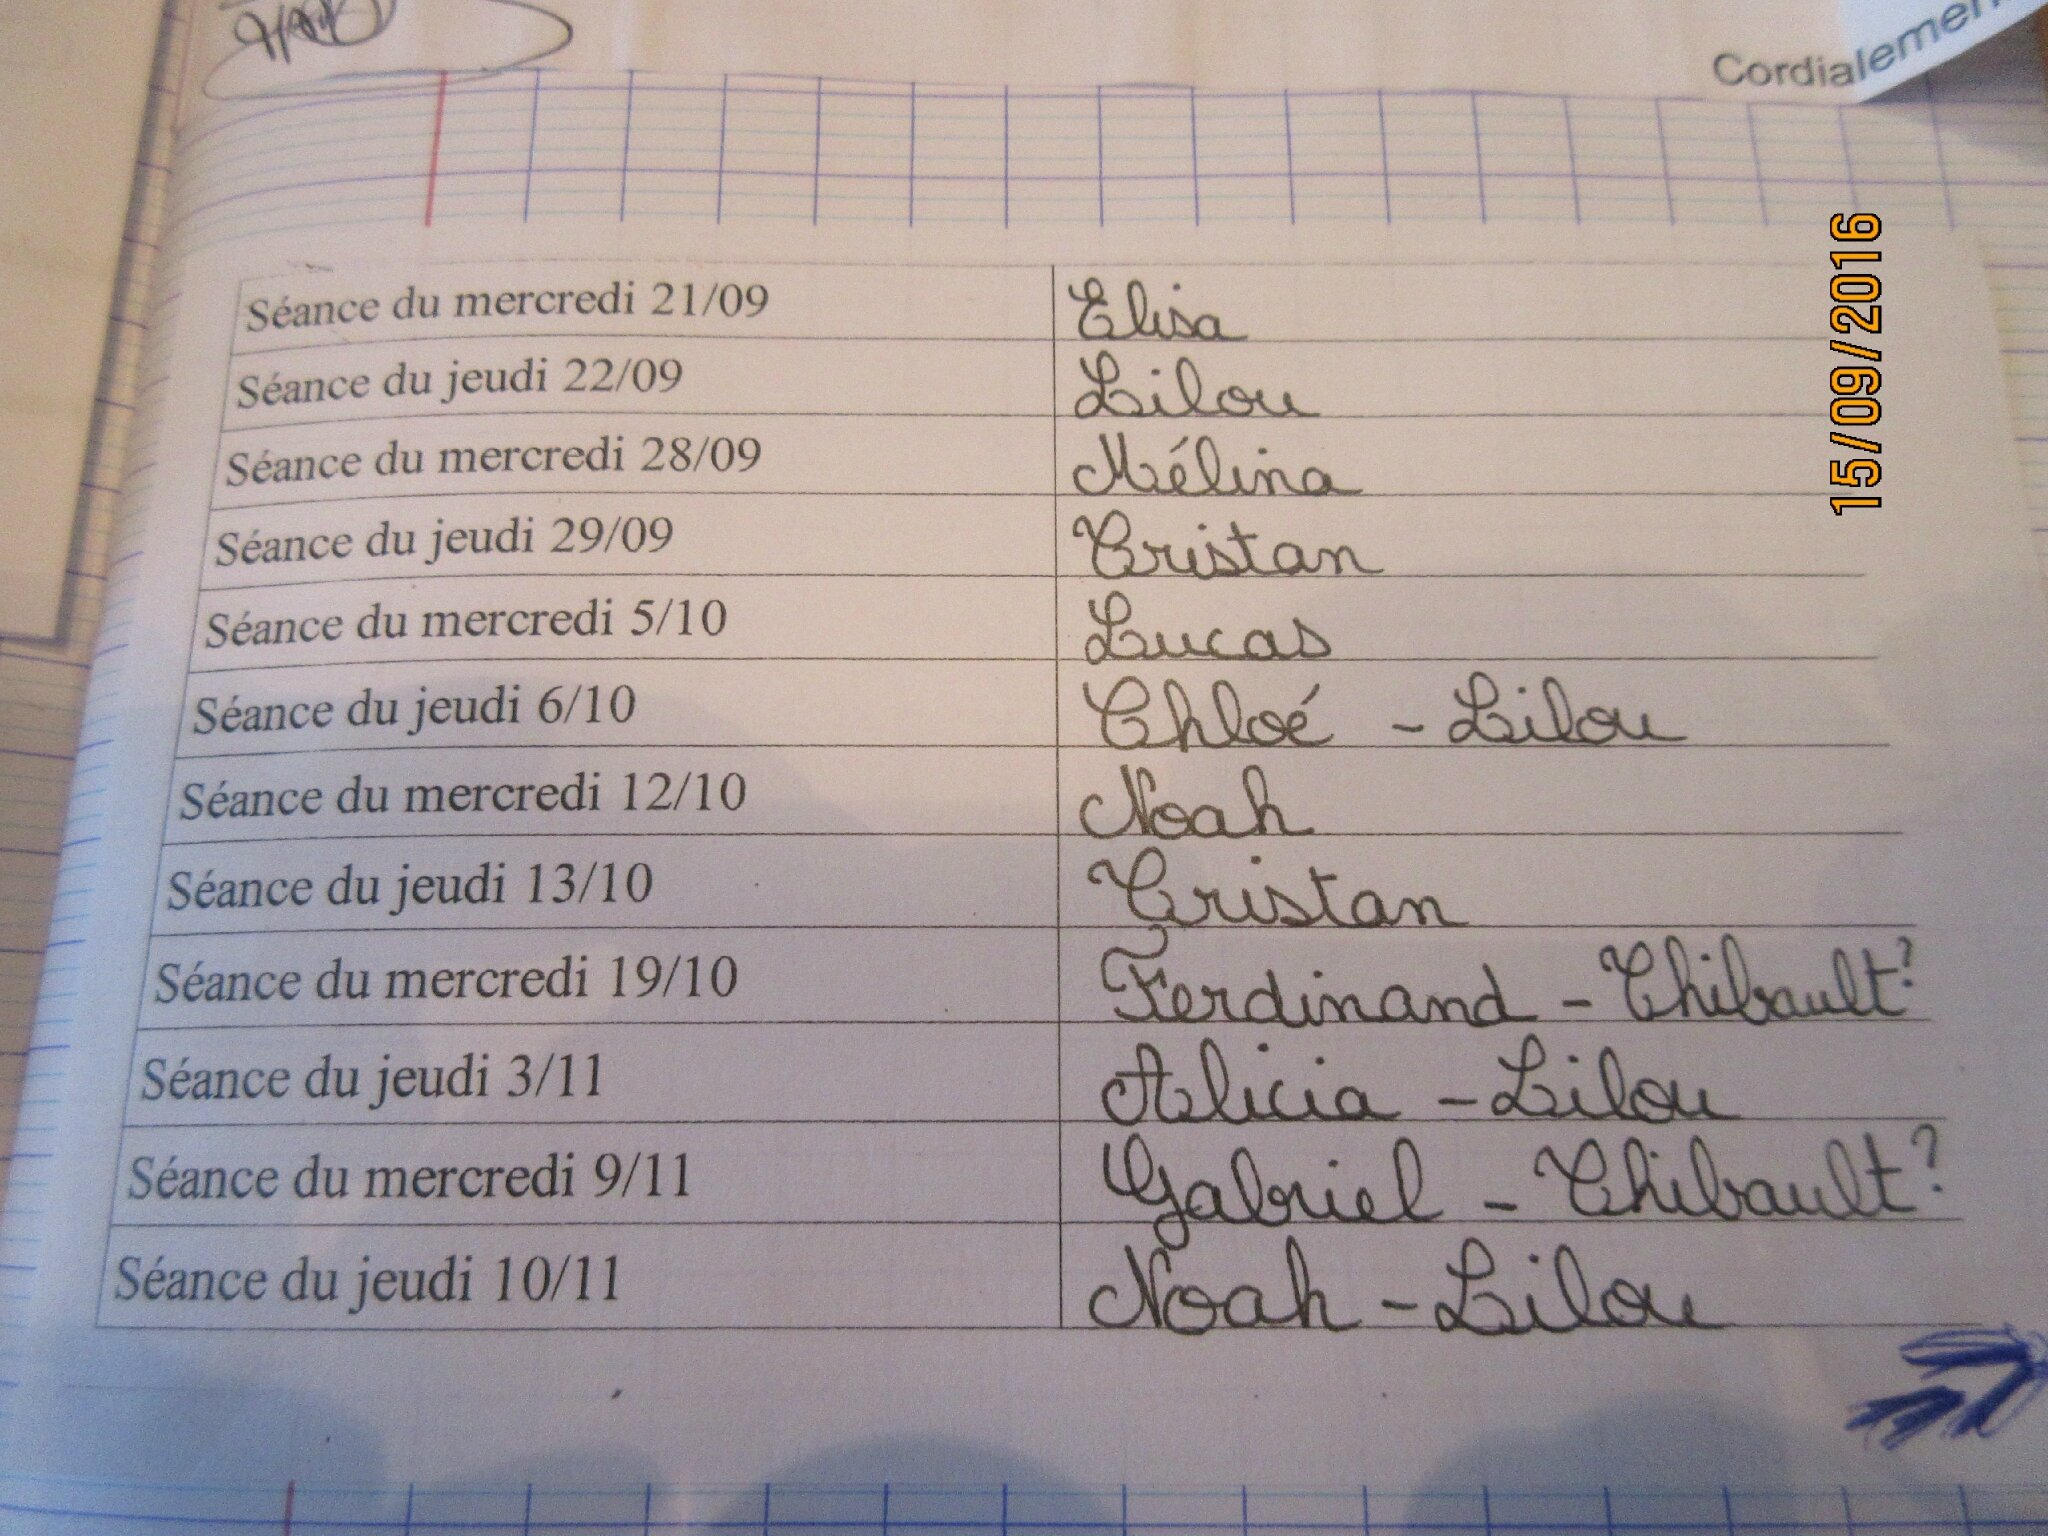 Cordialement
Séance du mercredi 21/09 Elisa
Séance du jeudi 22/09 Lilou
Séance du mercredi 28/09 Mélina
Séance du jeudi 29/09 Tristan
Séance du mercredi 5/10 Lucas
Séance du jeudi 6/10 Chloé - Lilou
Séance du mercredi 12/10 Noah
Séance du jeudi 13/10 Tristan
Séance du mercredi 19/10 Ferdinand - Thibault?
Séance du jeudi 3/11 Alicia - Lilou
Séance du mercredi 9/11 Gabriel - Thibault?
Séance du jeudi 10/11 Noah - Lilou
15/09/2016